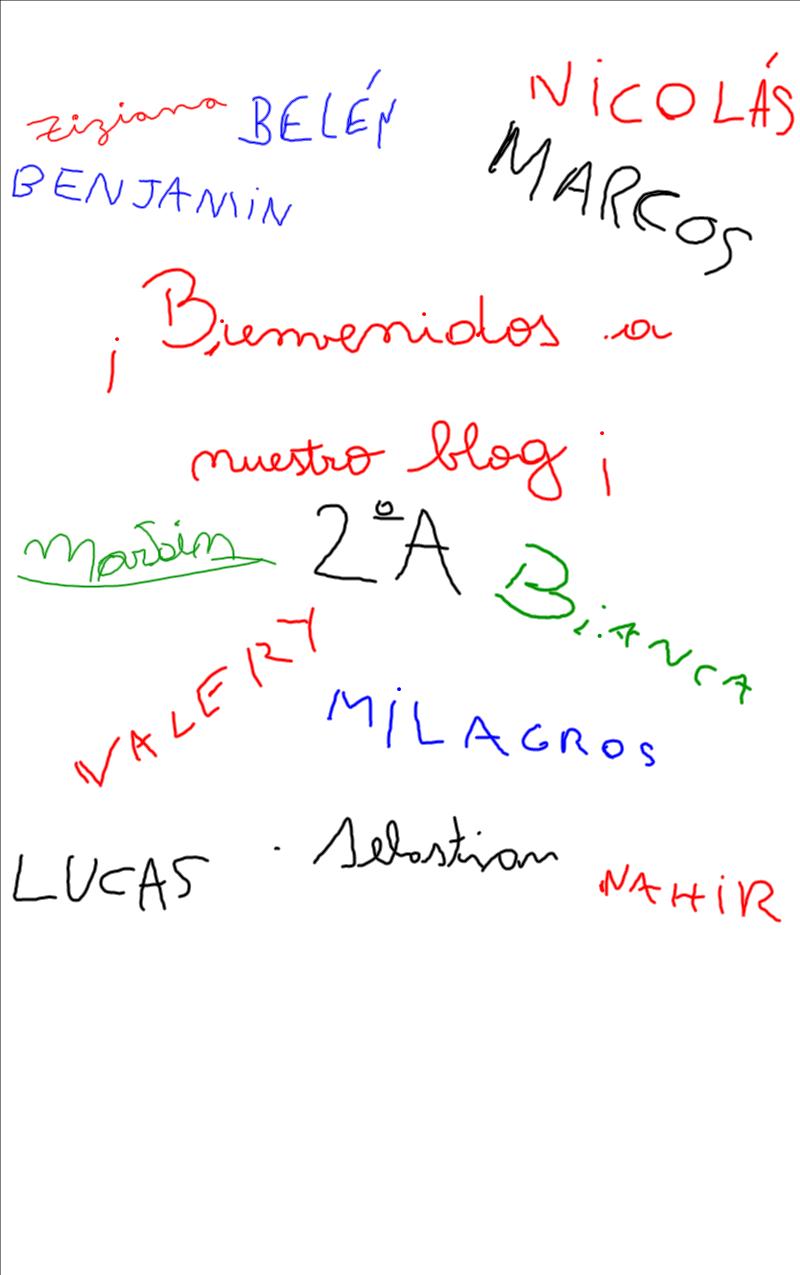 Tiziana BELÉN NICOLÁS
BENJAMIN MARCOS
¡Bienvenidos a
nuestro blog¡
Martin 2ºA BiANCA
VALERY
MILAGROS
LUCAS Sebastian NAHiR